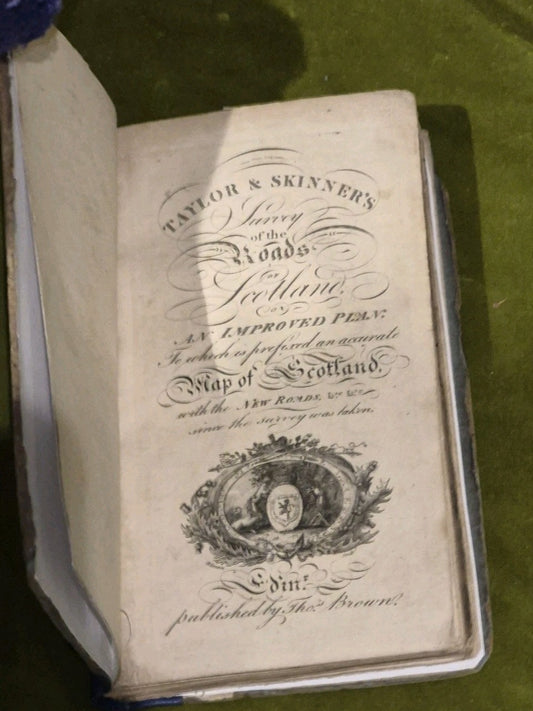 TAYLOR & SKINNER'S
Survey
of the
Roads
OF
Scotland,
ON
AN IMPROVED PLAN:
To which is prefixed an accurate
Map of Scotland,
with the NEW ROADS, &c. &c.
since the survey was taken.
Edinr.
published by Thos. Brown.